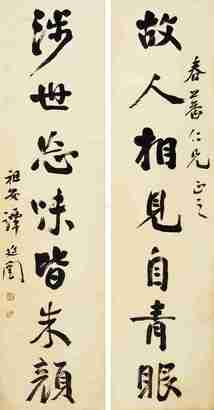 春蕃仁兄正之
故人相見自青眼
涉世忘味皆朱顏
祖安譚延闓